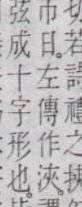 切若詩禮之挾
币日左傳作浹
弦成十字形也